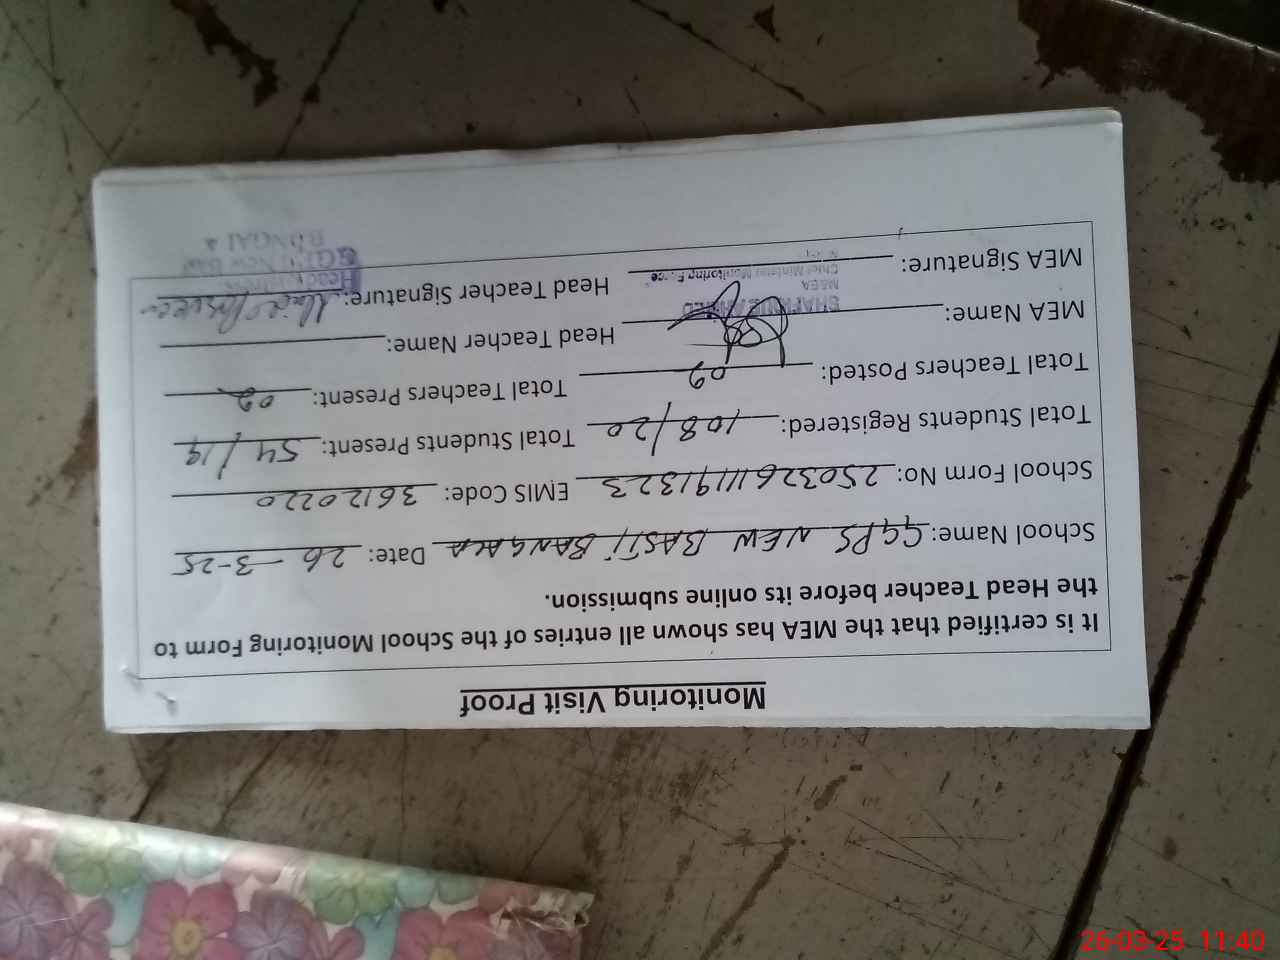 Monitoring Visit Proof
It is certified that the MEA has shown all entries of the School Monitoring Form to
the Head Teacher before its online submission.
School Name: GGPS NEW BASTI BANGALA Date: 26-3-25
School Form No: 25032611191323 EMIS Code: 36120220
Total Students Registered: 108/20 Total Students Present: 54/19
Total Teachers Posted: 02 Total Teachers Present: 02
MEA Name: Head Teacher Name:
SHAFIQUE AHMED
MEA
Chief Minister Monitoring Force
MEA Signature: Head Teacher Signature:
Head
GGPS New
26-03-25 11:40